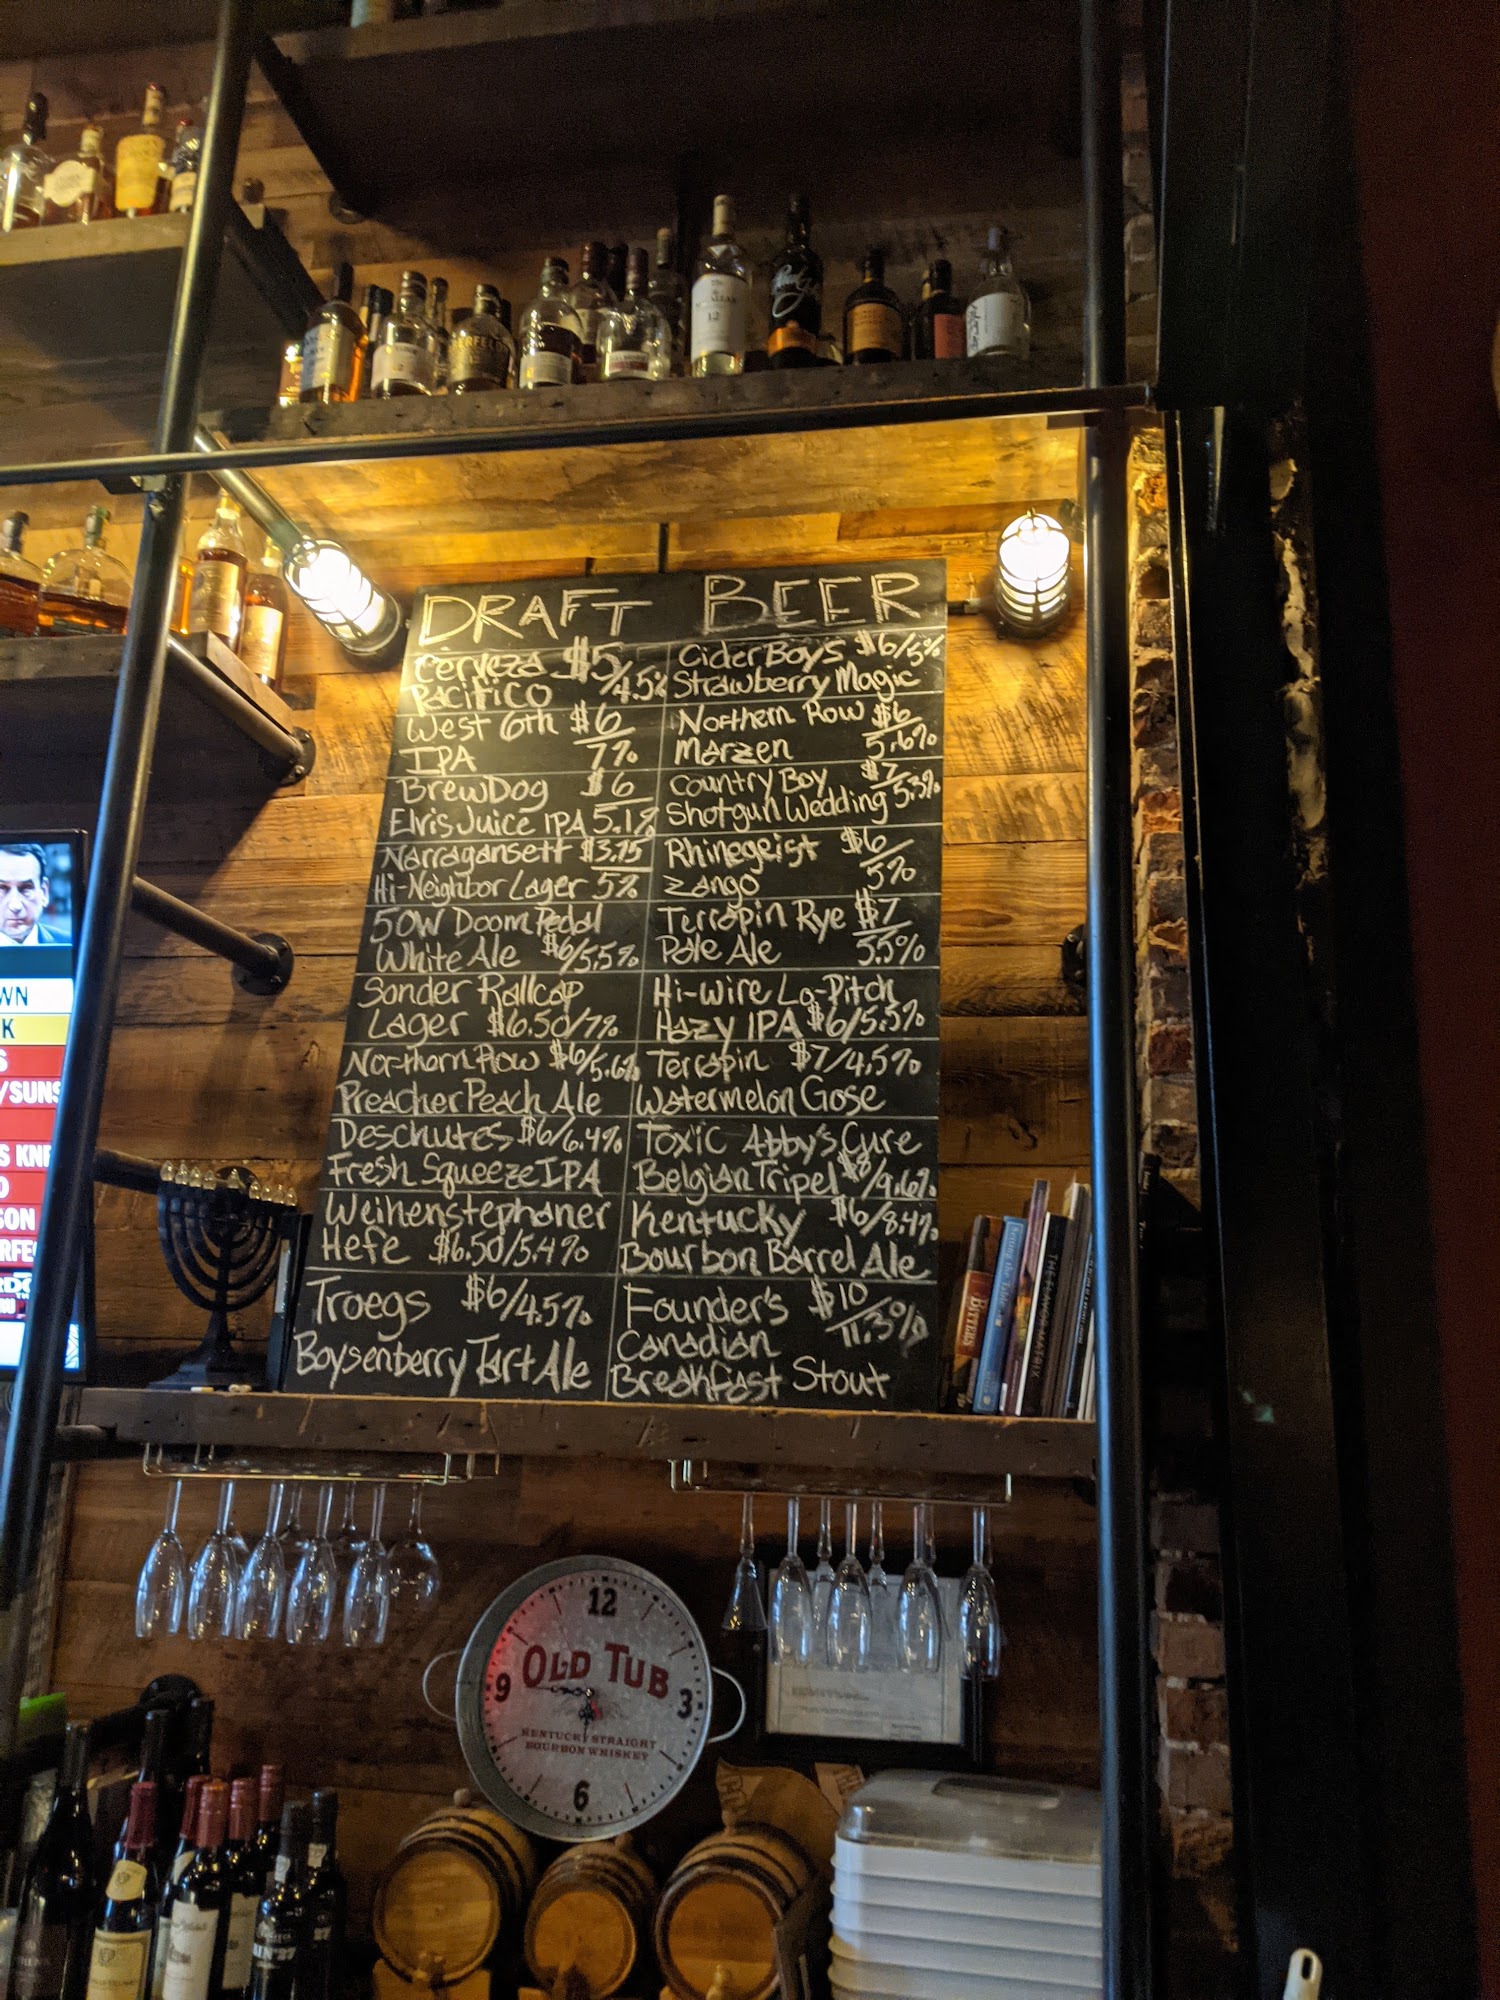 DRAFT BEER
Cerveza $5/4.5%
Pacifico
West 6th $6
IPA 7%
BrewDog $6
Elvis Juice IPA 5.1%
Narragansett $3.75
Hi-Neighbor Lager 5%
50W Doom Pedal
White Ale $6/5.5%
Sonder Rallcap
Lager $6.50/7%
Northern Row $6/5.6%
Preacher Peach Ale
Deschutes $6/6.4%
Fresh Squeeze IPA
Weihenstephaner
Hefe $6.50/5.4%
Troegs $6/4.5%
Boysenberry Tart Ale
Cider Boy's $6/5%
Strawberry Magic
Northern Row $6
Marzen 5.6%
Country Boy $7
Shotgun Wedding 5.3%
Rhinegeist $6
Zango 5%
Terrapin Rye $7
Pale Ale 5.5%
Hi-Wire Lo-Pitch
Hazy IPA $6/5.5%
Terrapin $7/4.5%
Watermelon Gose
Toxic Abby's Cure
Belgian Tripel $8/9.6%
Kentucky $6/8.4%
Bourbon Barrel Ale
Founder's $10
Canadian 11.3%
Breakfast Stout
WN
K
S
/SUNS
S KNI
O
SON
RFE
BITTERS
THE FLAVOR MATRIX
12
9
3
6
OLD TUB
KENTUCKY STRAIGHT
BOURBON WHISKEY